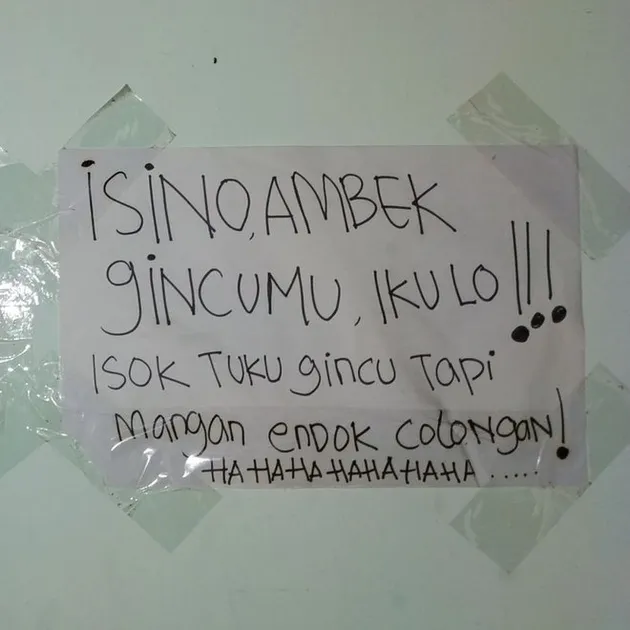 iSiNO, AMBEK
giNCUMU, IKU LO !!!
ISOK TUKU gincu TAPi
Mangan ENDOK COLONGAN!
HA HA HA HAHA HAHA .....